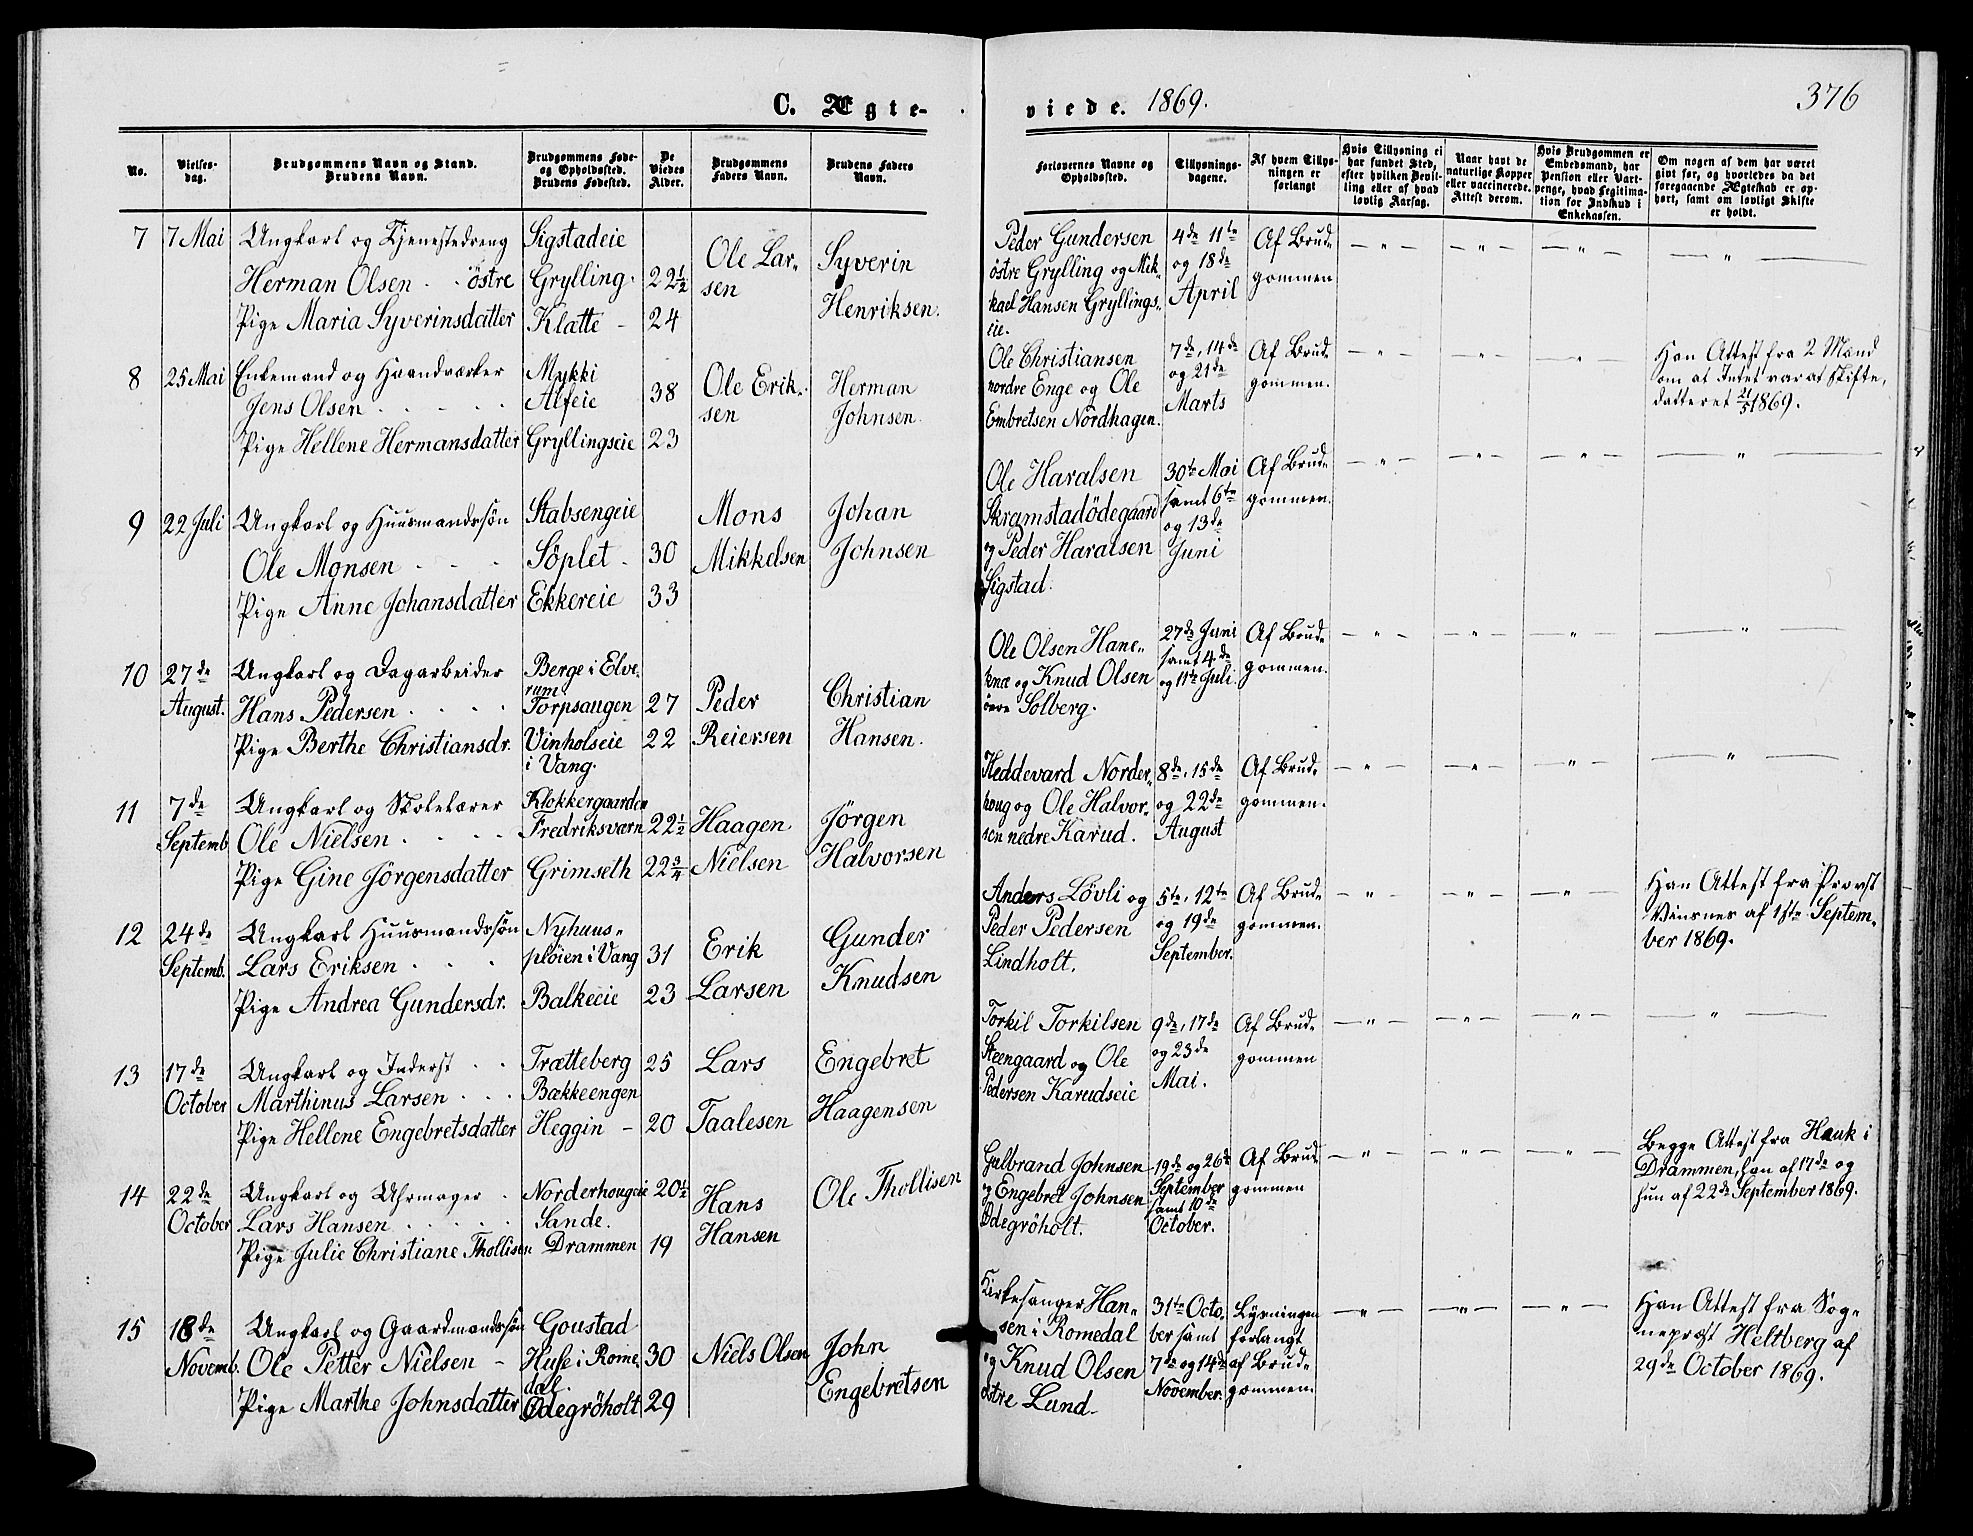 C. Ægte-
viede. 1869.
376
No.
Vielses-
dag.
Brudgommens Navn og Stand.
Brudens Navn.
Brudgommens Føde-
og Opholdssted.
Brudens Fødested.
De
Viedes
Alder.
Brudgommens
Faders Navn.
Brudens Faders
Navn.
Forlovernes Navne og
Opholdssted.
Tillysnings-
dagene.
Af hvem Tillys-
ningen er
forlangt
Hvis Tillysning ei
har fundet Sted,
efter hvilken Bevil-
ling eller af hvad
lovlig Aarsag.
Naar havt de
naturlige Kopper
eller vaccinerede.
Attest derom.
Hvis Brudgommen er
Embedsmand, har
Pension eller Vart-
penge, hvad Legitima-
tion for Indskud i
Enkekassen.
Om nogen af dem har været
givt før, og hvorledes da det
foregaaende Ægteskab er op-
hørt, samt om lovligt Skifte
er holdt.
7 7 Mai Ungkarl og Tjenestedreng Sigstadeie
Herman Olsen . . östre Grylling. 22½ Ole Lar- Syverin
sen Henriksen.
Pige Maria Syverinsdatter Klatte - 24
Peder Gundersen 4de 11te Af Brud-
östre Grylling og Mik- og 18de gommen
kael Hansen Gryllings- April
eie.
8 25 Mai Enkemand og Haandværker Mykki
Jens Olsen Alfeie 38 Ole Erik- Herman
sen Johnsen.
Pige Hellene Hermansdatter Gryllingseie 23
Ole Christiansen 7de, 14de Af Brud- Han Attest fra 2 Mænd
nordre Enge og Ole og 21de gommen. som at Intet var at skifte,
Embretsen Nordhagen. Marts datteret 21/5 1869.
9 22 Juli Ungkarl og Huusmandssön Stabsengeie Mons Johan
Ole Monsen Söplet 30 Mikkelsen Johnsen
Pige Anne Johansdatter Ekkereie 33
Ole Haralsen 30te Mai Af Brud-
Skramstadödegaard samt 6te gommen.
og Peder Haralsen og 13de
Sigstad. Juni
10 27de Ungkarl og Dagarbeider Berge i Elve-
rum
August. Hans Pedersen Torpsaugen 27 Peder Christian
Pige Berthe Christiansdr. Vinholseie 22 Reiersen Hansen.
i Vang.
Ole Olsen Hane- 27de Juni Af Brud-
knæ og Knud Olsen samt 4de gommen.
övre Solberg. og 11te Juli.
11 7de Ungkarl og Skolelærer Klokkergaarden
Septemb Ole Nielsen Fredriksværn 22½ Haagen Jörgen
Pige Gine Jörgensdatter Grimseth 22¾ Nielsen Halvorsen
Heddevard Norder- 8de, 15de Af Brud-
houg og Ole Halvor- og 22de gommen.
sen nedre Karud. August
12 24de Ungkarl Huusmandssön Nyhuus-
Septemb. Lars Eriksen plöien i Vang 31 Erik Gunder
Pige Andrea Gundersdr. Balkeeie 23 Larsen Knudsen
Anders Lövli og 5te, 12te Af Brud- Han Attest fra Provst
Peder Pedersen og 19de gommen. Vinsnes af 1ste Septem-
Lindholt. September. ber 1869.
13 17de Ungkarl og Inderst Trætteberg 25 Lars Engebret
October Marthinus Larsen Bækkeengen
Pige Hellene Engebretsdatter Heggin - 20 Taalesen Haagensen
Torkil Torkilsen 9de, 17de Af Brud-
Steengaard og Ole og 23de gommen
Pedersen Karudseie Mai.
14 22de Ungkarl og Uhrmager Norderhougeie 20½ Hans Ole Thollisen
October Lars Hansen Sande. Hansen
Pige Julie Christiane Thollisen Drammen 19
Gulbrand Johnsen 19de og 26de Af Brud- Begge Attest fra Hauk i
og Engebret Johnsen September gommen Drammen, han af 17de og
Ödegröholt. samt 10de hun af 22de September 1869.
October.
15 18de Ungkarl og Gaardmandssön Goustad
Novemb. Ole Petter Nielsen - Huse i Rome- 30 Niels Olsen John
dal. Engebretsen
Pige Marthe Johnsdatter Ödegröholt 29
Kirkesanger Han- 31te Octo- Lysningen Han Attest fra Sog-
sen i Romedal ber samt forlangt nepræst Heltberg af
og Knud Olsen 7de og 14de af Brud- 29de October 1869.
östre Lund- November. gommen.